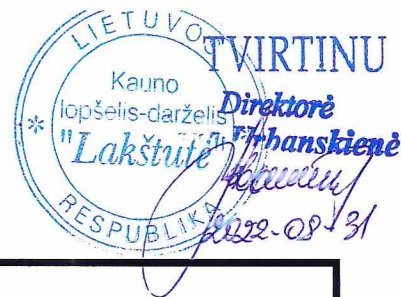 LIETUVOS
RESPUBLIKA
Kauno
lopšelis-darželis
"Lakštutė"
TVIRTINU
Direktorė
Urbanskienė
2022-08-31